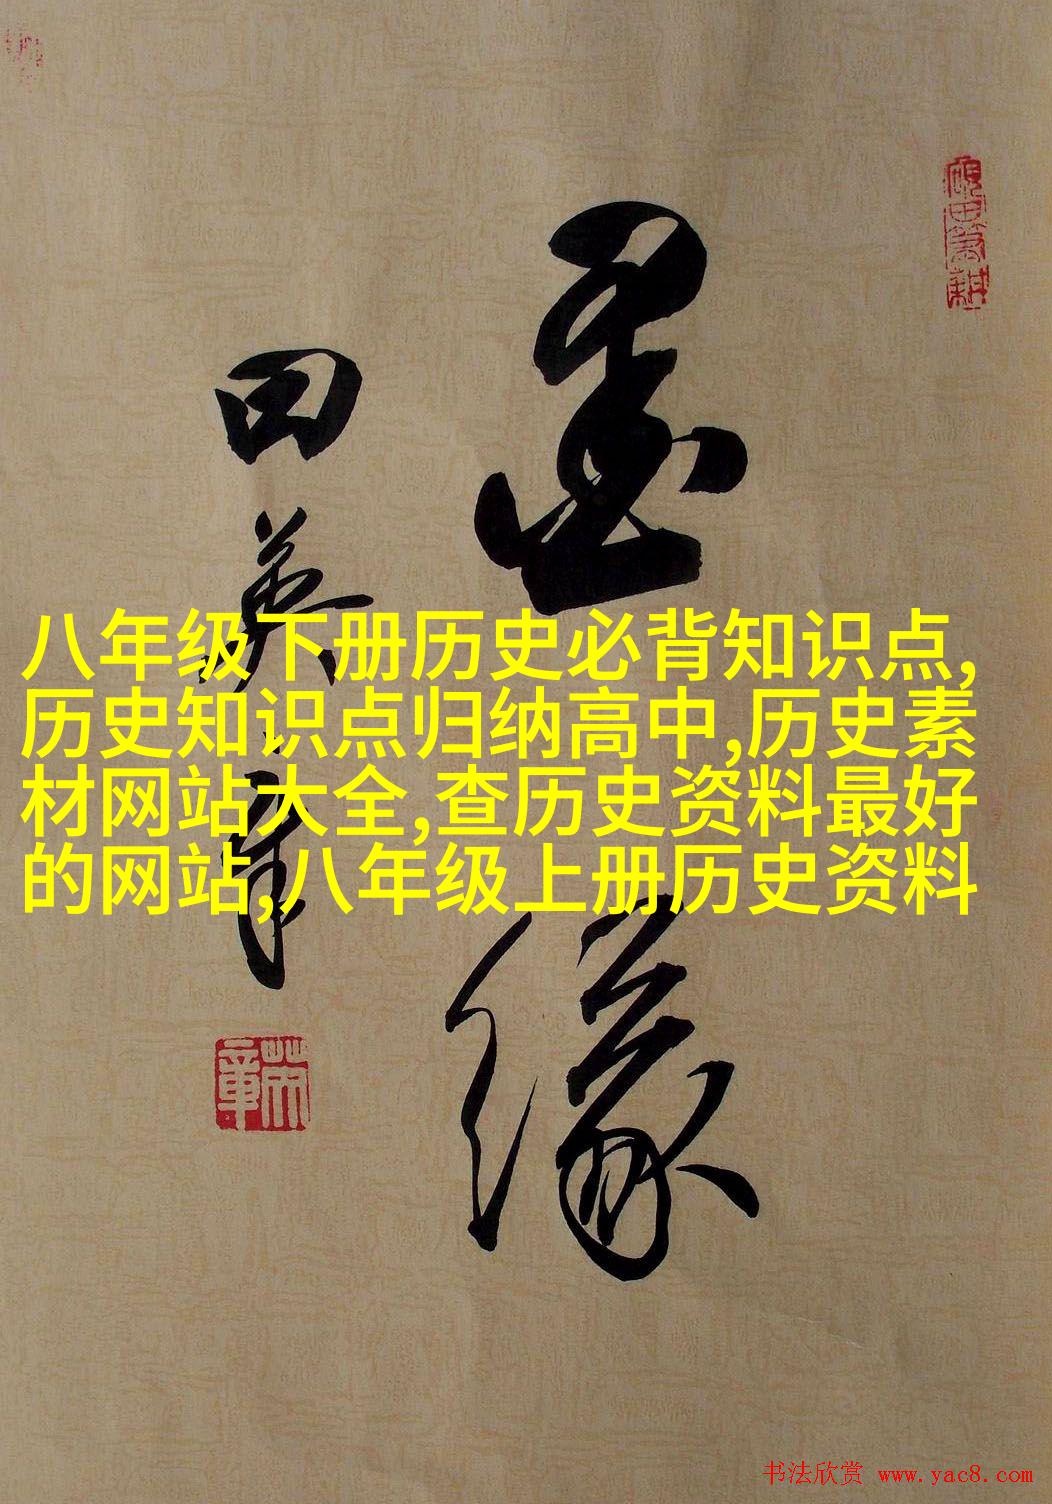 墨缘
田英章
八年级下册历史必背知识点,
历史知识点归纳高中,历史素
材网站大全,查历史资料最好
的网站,八年级上册历史资料
书法欣赏 www.yac8.com